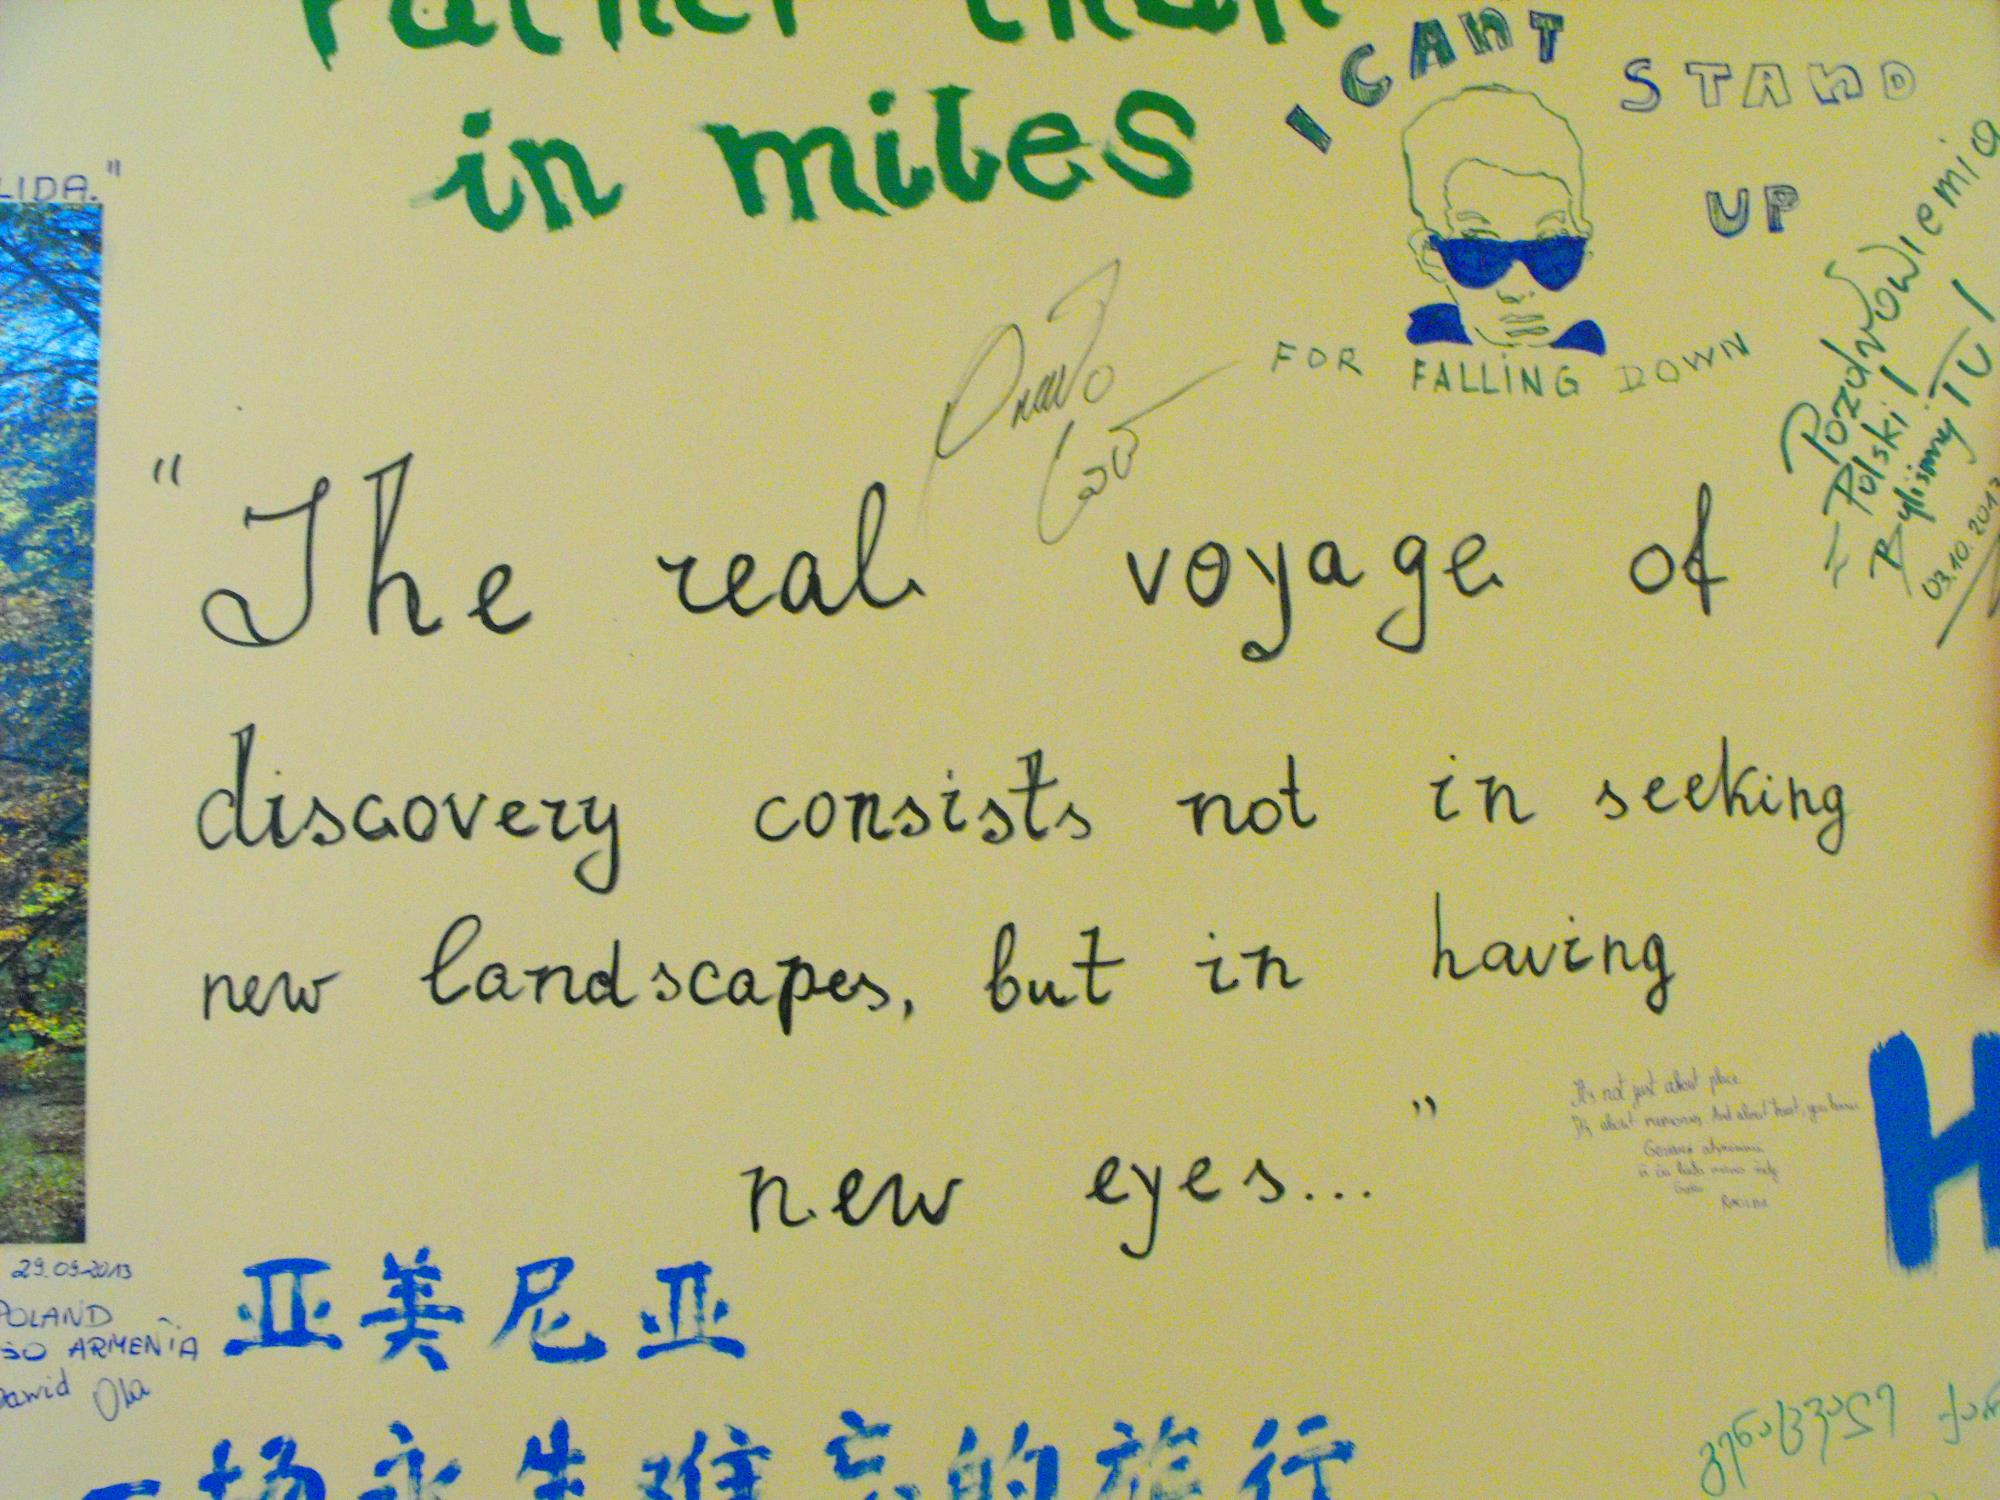 rather than
in miles
I CAN'T
STAND
UP
FOR FALLING DOWN
LIDA."
Pozdrowiemia
z Polski!
Byliśmy TU!
03.10.2013
"The real voyage of
discovery consists not in seeking
new landscapes, but in having
new eyes..."
It's not just about place.
It's about memories. And about trust, you know
H
29.09.2013
POLAND
ARMENIA
Dawid Ola
亚美尼亚
一场永生难忘的旅行
გენაცვალე